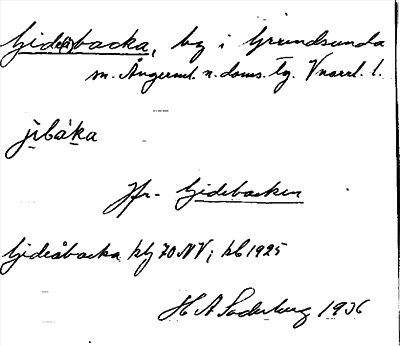 Gide(å)backa, by i Grundsunda
sn. Ångerml. n. doms. tg. Vnorrl. l.
jìbàka
Jfr. Gidebacken
Gideåbacka kbl 70 NV; kbl 1925
H A Söderberg 1936